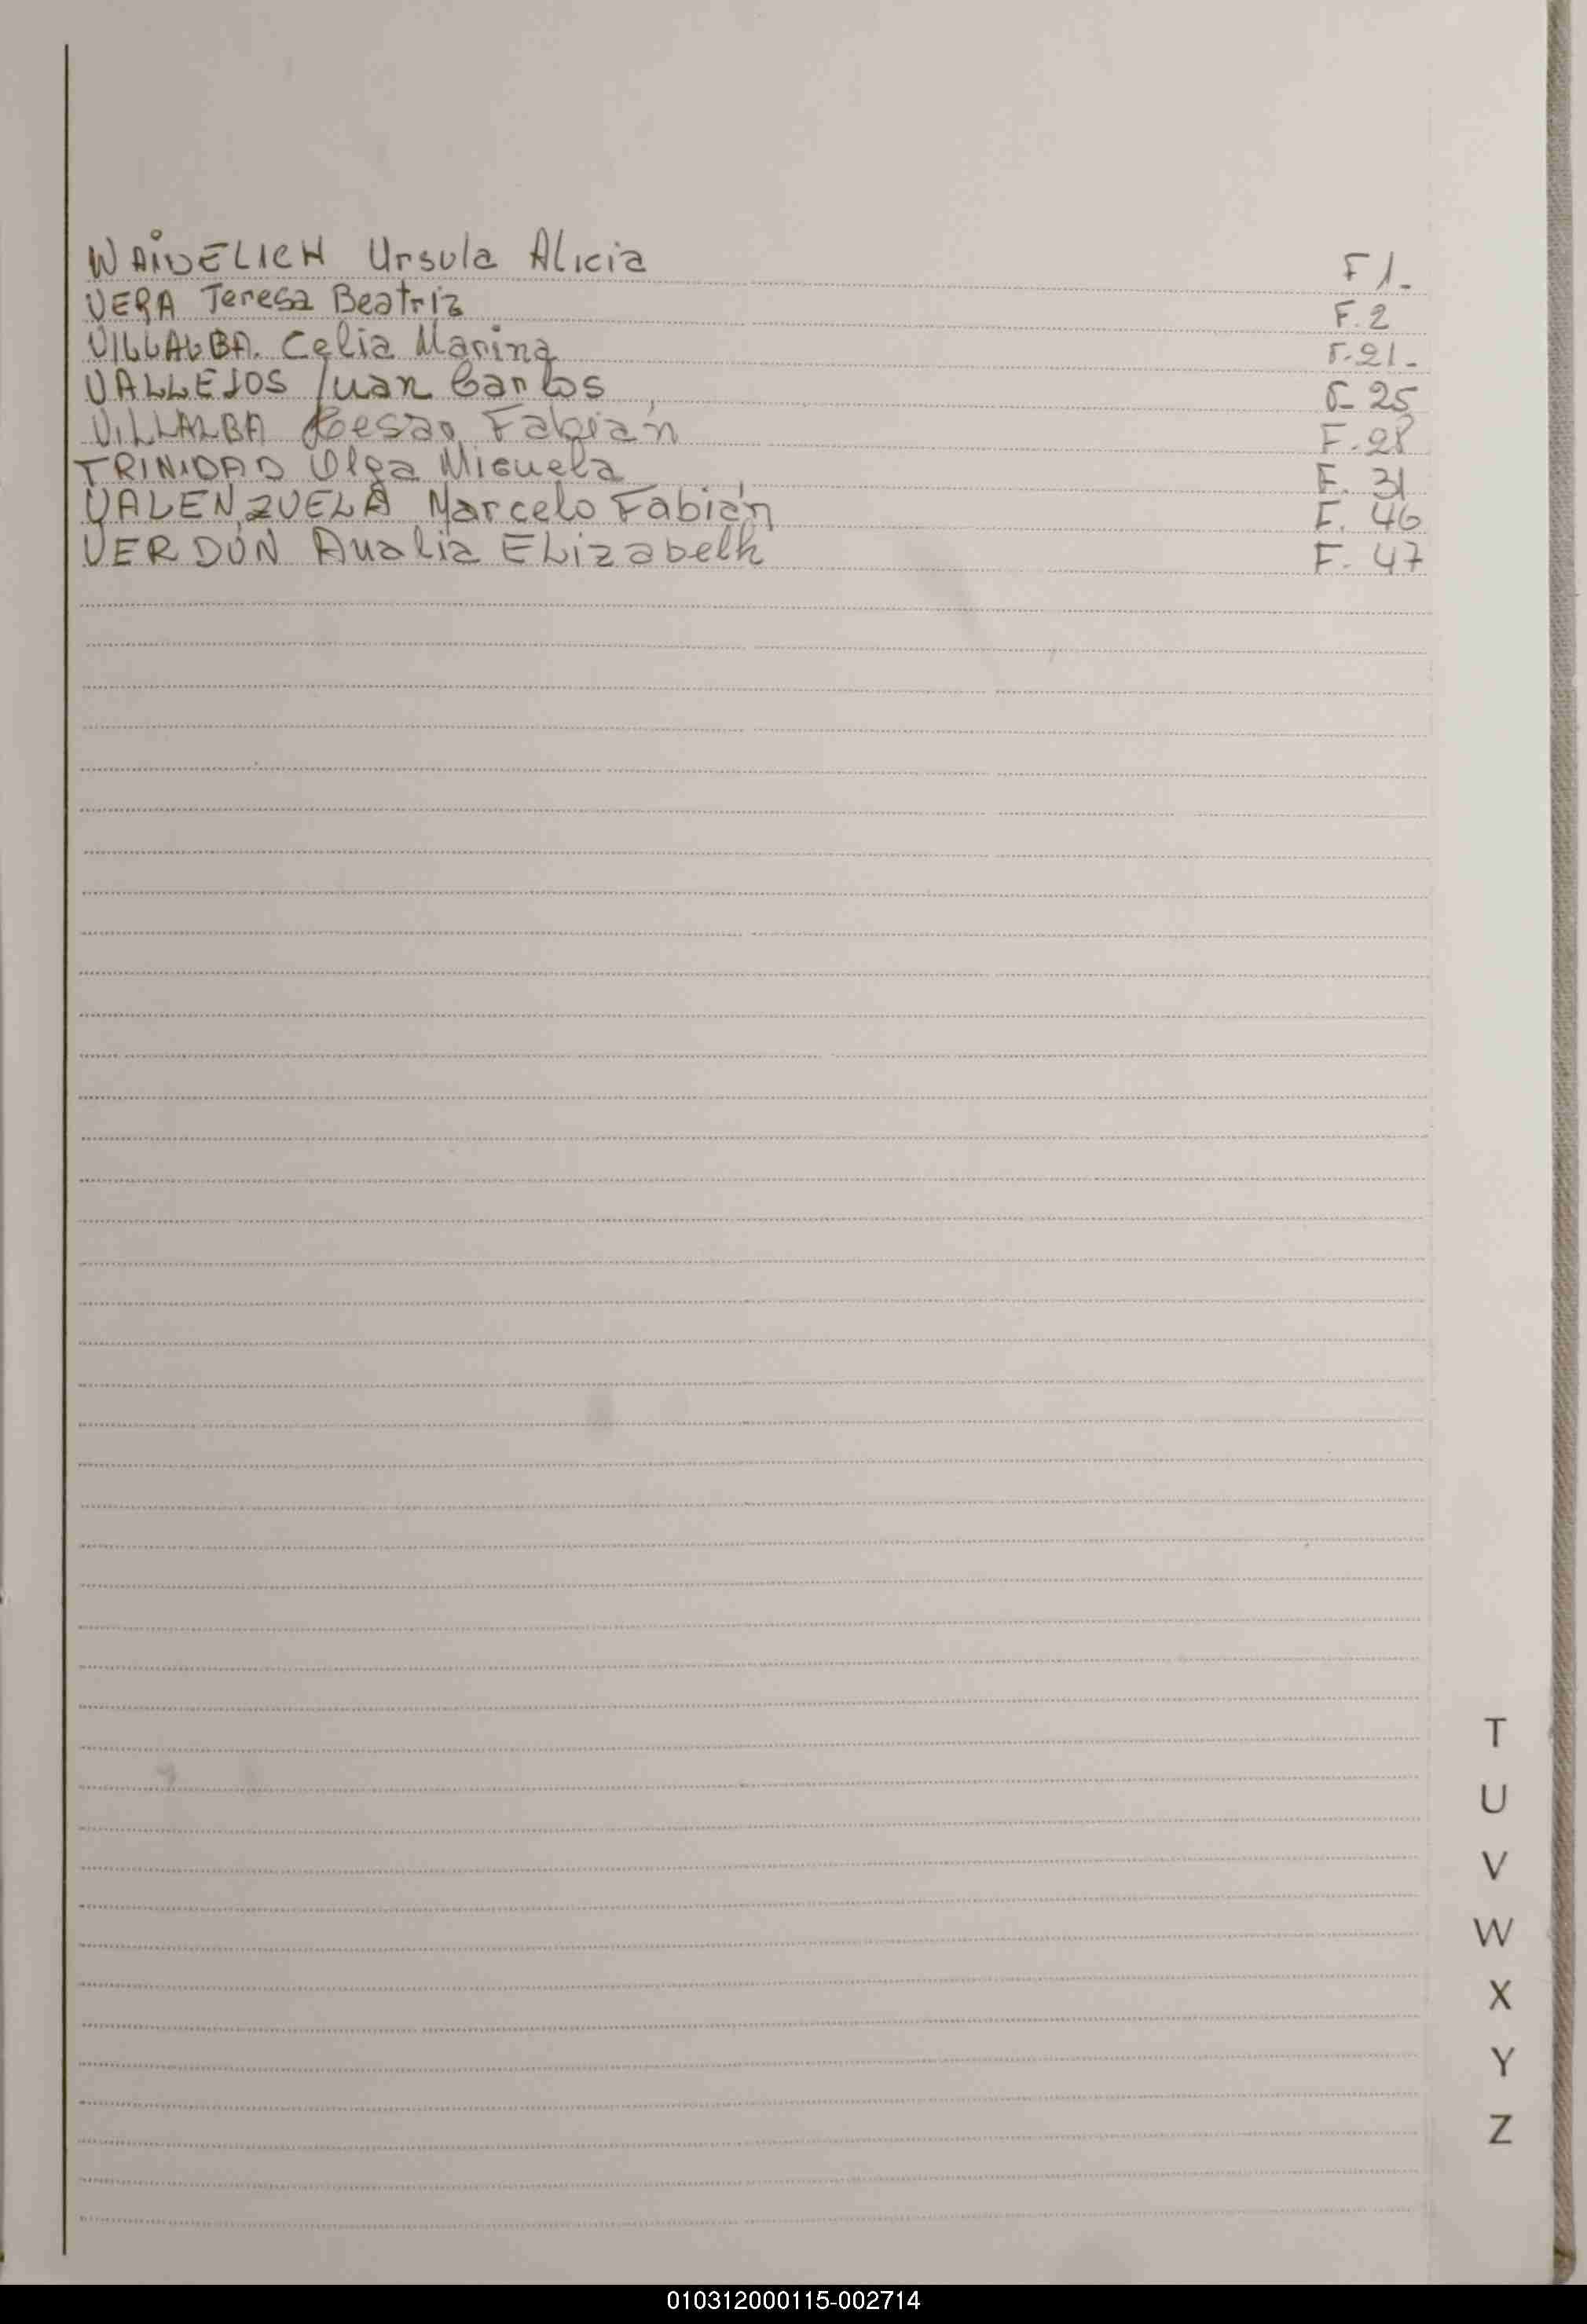 WAIDELICH Ursula Alicia F 1.
VERA Teresa Beatriz F. 2
VILLALBA. Celia Marina F. 21.
VALLEJOS Juan Carlos F 25
VILLALBA Cesar Fabián F. 28
TRINIDAD Olga Miguela F. 31
VALENZUELA Marcelo Fabián F. 46
VERDÚN Analia Elizabeth F. 47
T
U
V
W
X
Y
Z
010312000115-002714